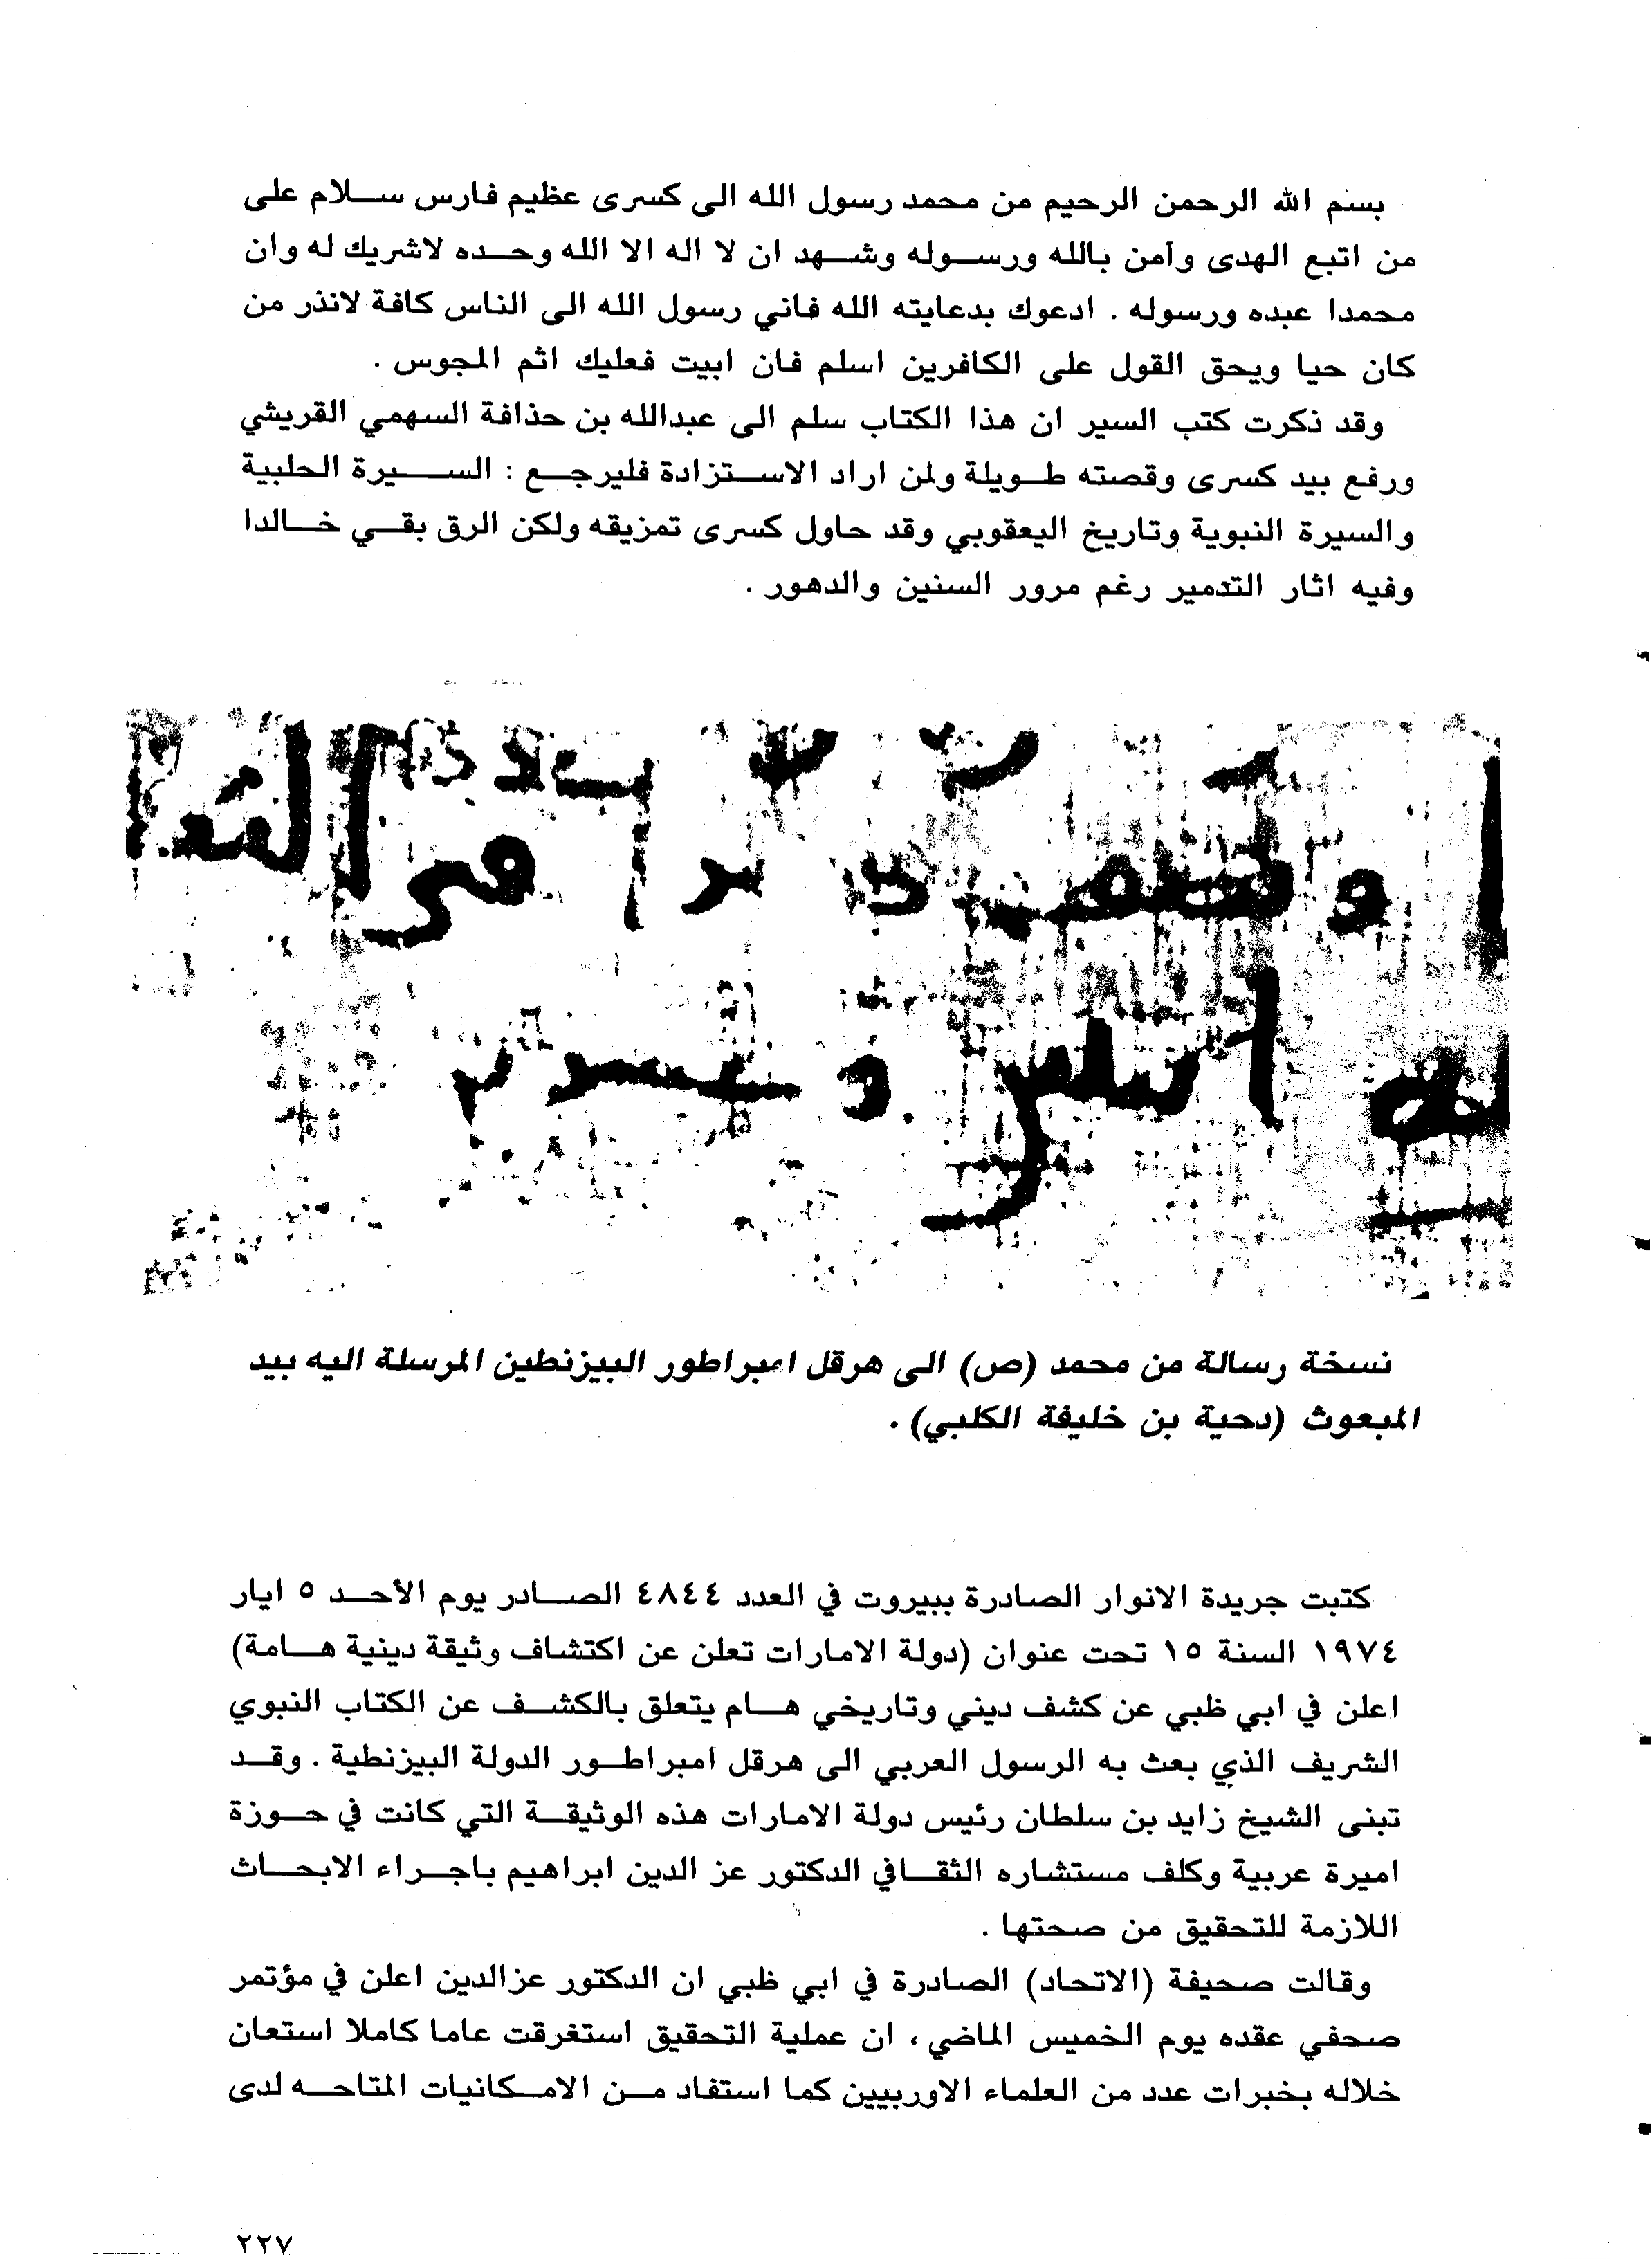 بسم الله الرحمن الرحيم من محمد رسول الله الى كسرى عظيم فارس سلام على
من اتبع الهدى وآمن بالله ورسوله وشهد ان لا اله الا الله وحده لاشريك له وان
محمدا عبده ورسوله . ادعوك بدعايته الله فاني رسول الله الى الناس كافة لانذر من
كان حيا ويحق القول على الكافرين اسلم فان ابيت فعليك اثم المجوس .
وقد ذكرت كتب السير ان هذا الكتاب سلم الى عبدالله بن حذافة السهمي القريشي
ورفع بيد كسرى وقصته طويلة ولمن اراد الاستزادة فليرجع : السيرة الحلبية
والسيرة النبوية وتاريخ اليعقوبي وقد حاول كسرى تمزيقه ولكن الرق بقي خالدا
وفيه اثار التدمير رغم مرور السنين والدهور .
نسخة رسالة من محمد (ص) الى هرقل امبراطور البيزنطين المرسلة اليه بيد
المبعوث (دحية بن خليفة الكلبي) .
كتبت جريدة الانوار الصادرة ببيروت في العدد ٤٨٤٤ الصادر يوم الأحد ٥ ايار
١٩٧٤ السنة ١٥ تحت عنوان (دولة الامارات تعلن عن اكتشاف وثيقة دينية هامة)
اعلن في ابي ظبي عن كشف ديني وتاريخي هام يتعلق بالكشف عن الكتاب النبوي
الشريف الذي بعث به الرسول العربي الى هرقل امبراطور الدولة البيزنطية . وقد
تبنى الشيخ زايد بن سلطان رئيس دولة الامارات هذه الوثيقة التي كانت في حوزة
اميرة عربية وكلف مستشاره الثقافي الدكتور عز الدين ابراهيم باجراء الابحاث
اللازمة للتحقيق من صحتها .
وقالت صحيفة (الاتحاد) الصادرة في ابي ظبي ان الدكتور عزالدين اعلن في مؤتمر
صحفي عقده يوم الخميس الماضي ، ان عملية التحقيق استغرقت عاما كاملا استعان
خلاله بخبرات عدد من العلماء الاوربيين كما استفاد من الامكانيات المتاحه لدى
٢٢٧